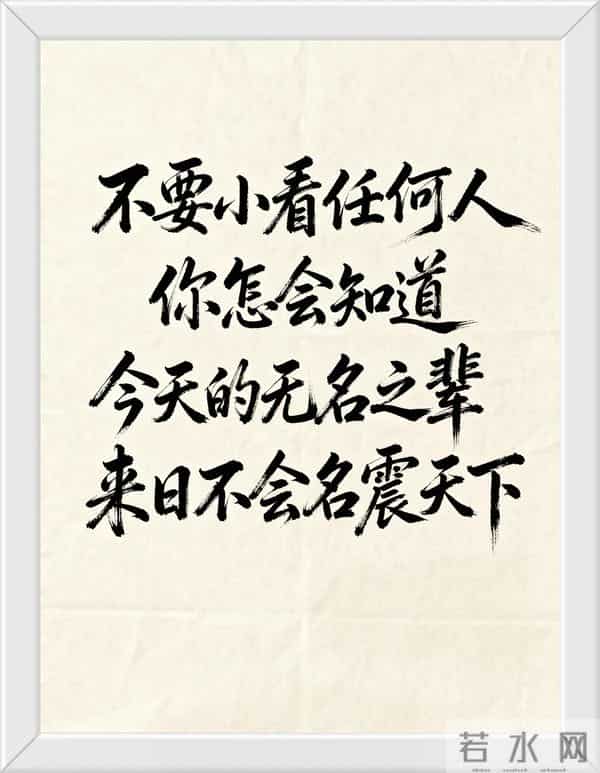 不要小看任何人
你怎会知道
今天的无名之辈
来日不会名震天下
若水网